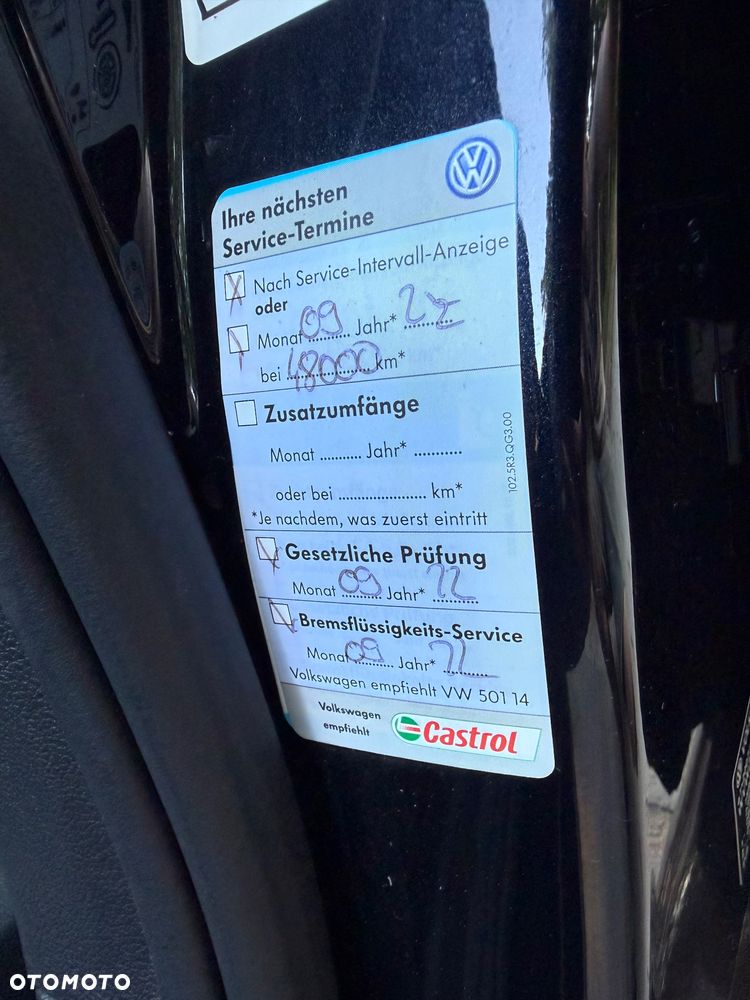 Ihre nächsten
Service-Termine
Nach Service-Intervall-Anzeige
oder
Monat 09 Jahr* 22
bei 48000 km*
Zusatzumfänge
Monat ........... Jahr* ............
oder bei ...................... km*
*Je nachdem, was zuerst eintritt
102.5R3.QG3.00
Gesetzliche Prüfung
Monat 09 Jahr* 22
Bremsflüssigkeits-Service
Monat 09 Jahr* 22
Volkswagen empfiehlt VW 501 14
Volkswagen
empfiehlt
Castrol
OTOMOTO